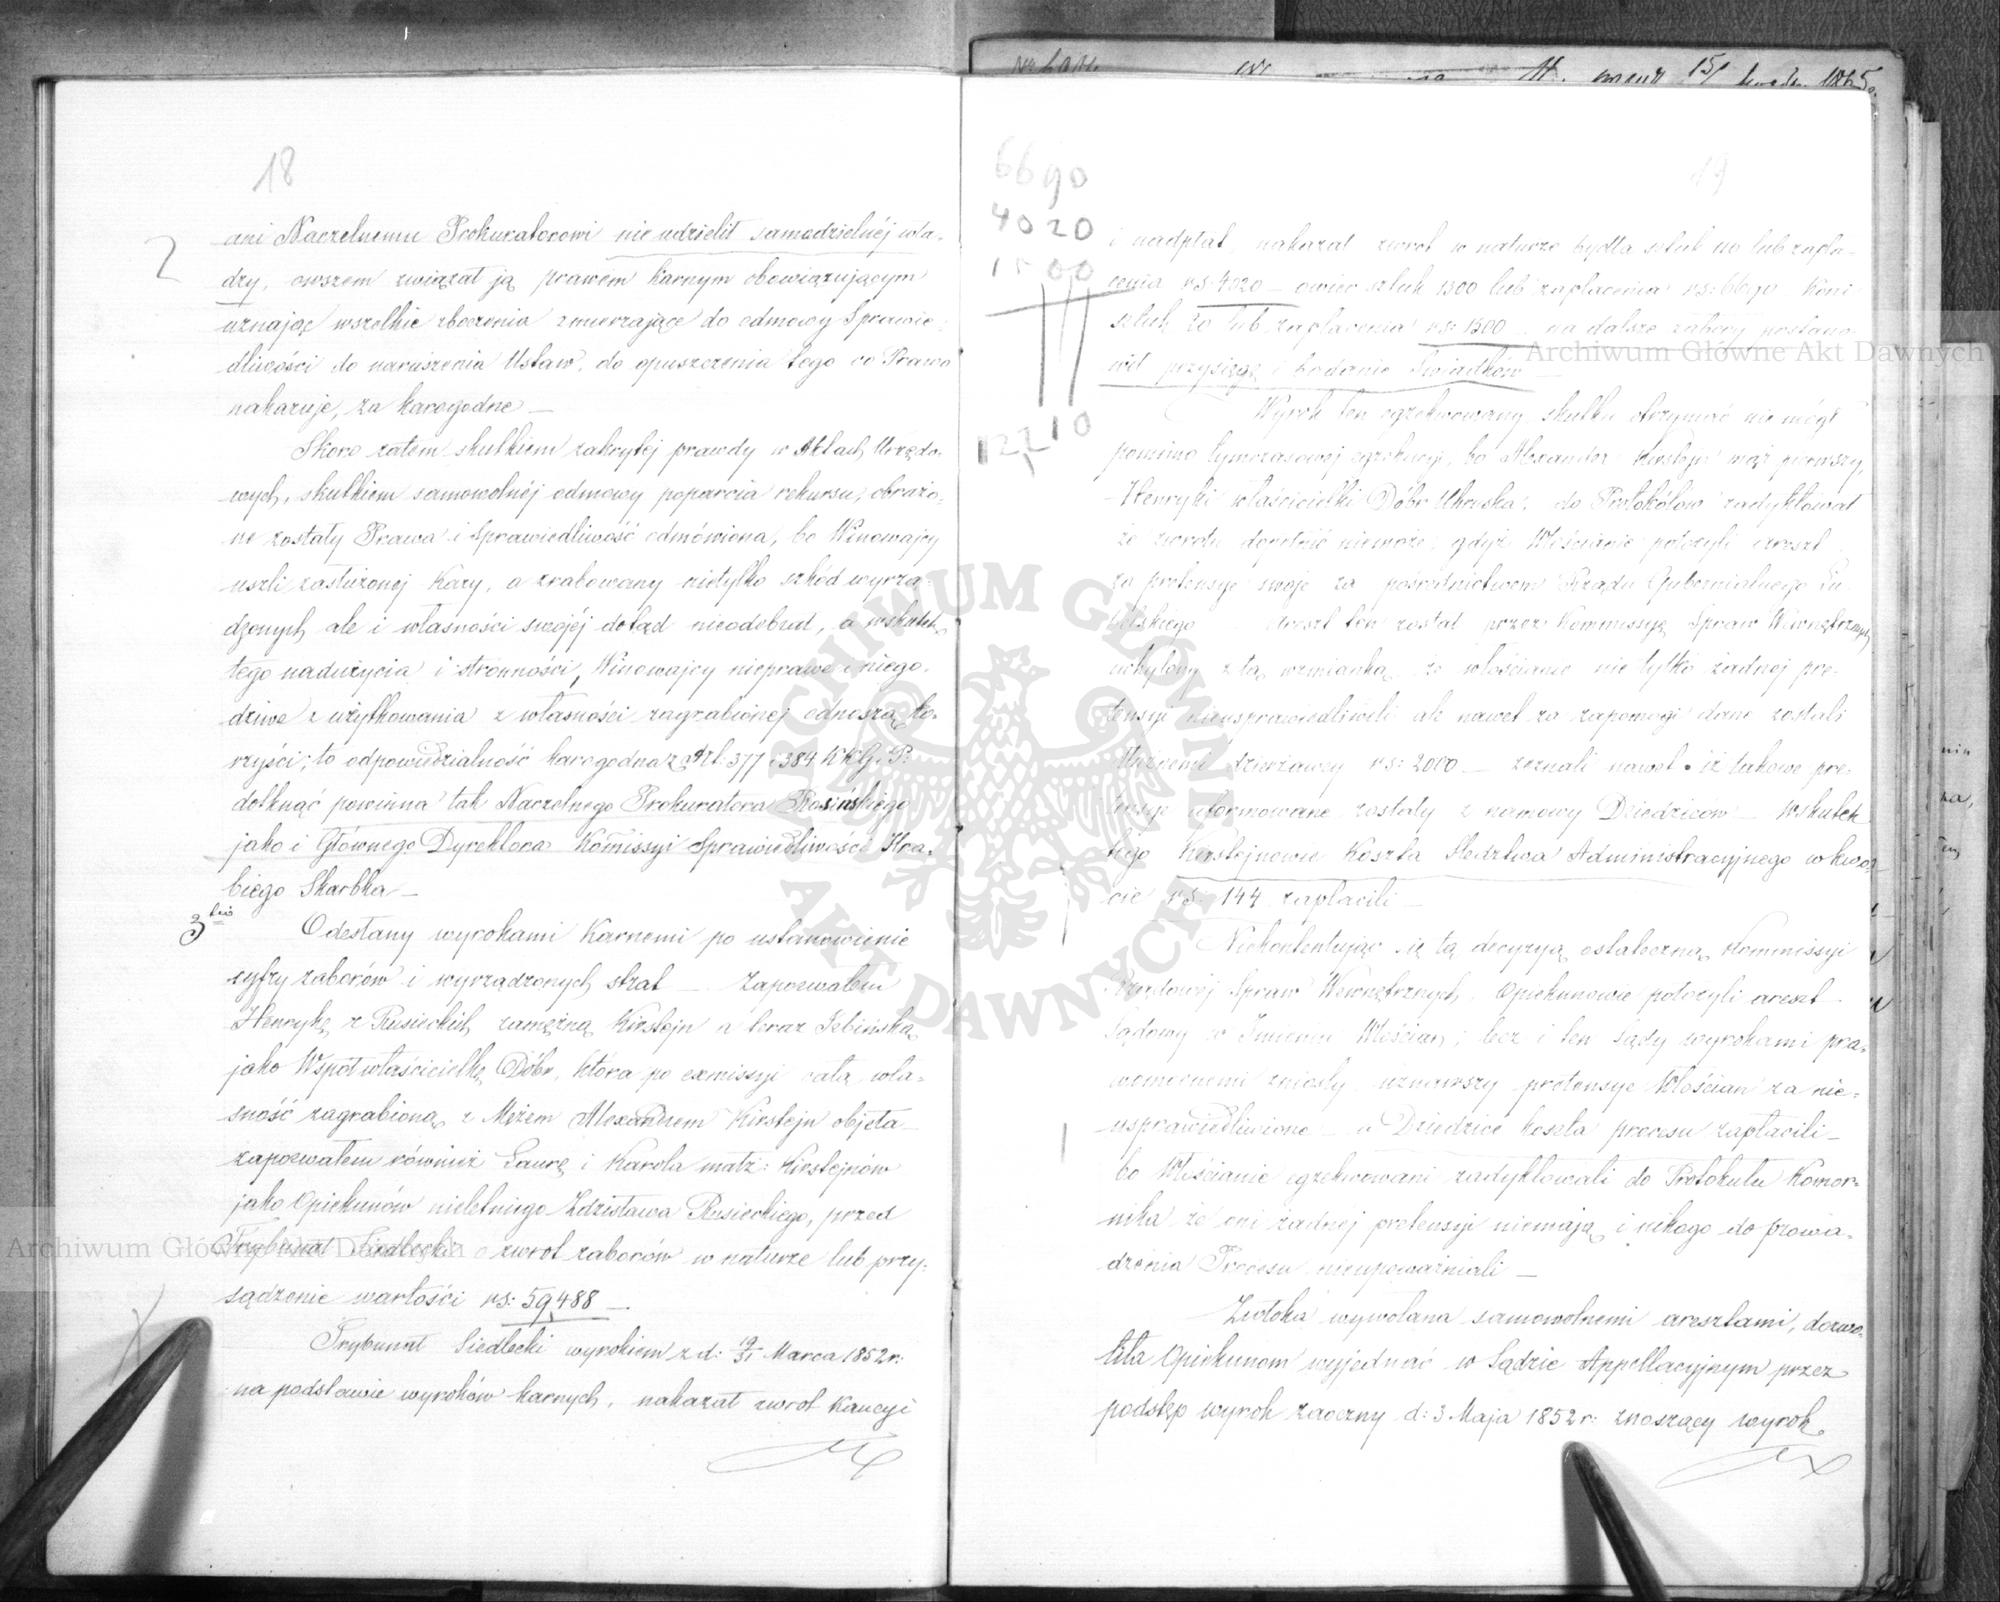 18
ani Naczelnemu Prokuratorowi nie udzielił samodzielnéj wła-
dzy, owszem związał ją prawem karnym obowiązującym
uznając wszelkie zboczenia zmierzające do odmowy Sprawie-
dliwości do naruszenia Ustaw, do opuszczenia tego co Prawo
nakazuje, za karogodne —
Skoro zatem skutkiem zakrytéj prawdy w Aktach Urzędo-
wych, skutkiem samowolnéj odmowy poparcia rekursu, obrażo-
ne zostały Prawa i Sprawiedliwość odmówiona, bo Winowajcy
uszli zasłużonej Kary, a zrabowany nietylko szkód wyrzą-
dzonych ale i własności swojéj dotąd nieodebrał, a wskutek
tego nadużycia i stronności, Winowajcy nieprawe i niego-
dziwe z użytkowania z własności zagrabionej odnoszą ko-
rzyści; to odpowiedzialność karogodna z Art: 377 i 384 KKG.P:
dotknąć powinna tak Naczelnego Prokuratora Rosińskiego
jako i Głównego Dyrektora Komissyi Sprawiedliwości Hra-
biego Skarbka —
3tio
Odesłany wyrokami Karnemi po ustanowienie
cyfry zaborów i wyrządzonych strat — Zapozwałem
Henrykę z Rusieckich zamężną Kirstejn a teraz Zebińską
jako Współwłaścicielkę Dóbr, która po exmissyi całą wła-
sność zagrabioną z Mężem Alexandrem Kirstejn objęła —
zapozwałem również Laurę i Karola małż: Kirstejnów
jako Opiekunów nieletniego Zdzisława Rusieckiego, przed
Trybunał Siedlecki o zwrot zaborów w naturze lub przy-
sądzenie wartości rs: 59488 —
Trybunał Siedlecki wyrokiem z d: 19/31 Marca 1852 r:
na podstawie wyroków karnych, nakazał zwrot Kaucyi
19
6690
4020
1500
12210
i nadpłat, nakazał zwrot w naturze bydła sztuk 110 lub zapła-
cenia rs: 4020 — owiec sztuk 1300 lub zapłacenia rs: 6690 Koni
sztuk 20 lub zapłacenia rs: 1500 — na dalsze zabory postano-
wił przysięgę i badanie Świadków —
Wyrok ten egzekwowany skutku otrzymać nie mógł
pomimo tymczasowej egzekucyi, bo Alexander Kirstejn mąż pierwszy
Henryki właścicielki Dóbr Uhruska, do Protokółów zadyktował
że zwrotu dopełnić niemoże, gdyż Włościanie położyli areszt
za pretensye swoje za pośrednictwem Rządu Gubernialnego Lu-
belskiego — Areszt ten został przez Kommissyę Spraw Wewnętrznych
uchylony z tą wzmianką, że włościanie nie tylko żadnej pre-
tensyi nieusprawiedliwili ale nawet za zapomogi dane zostali
dłużnemi dzierżawcy rs: 2000 — zeznali nawet iż takowe pre-
tensye uformowane zostały z namowy Dziedziców — Wskutek
tego Kirstejnowie Koszta Śledztwa Administracyjnego w kwo-
cie rs: 144 zapłacili —
Niekontentując się tą decyzyą ostateczną Kommissyi
Rządowéj Spraw Wewnętrznych, Opiekunowie położyli areszt
Sądowy w Imieniu Włościan, lecz i ten Sądy wyrokami pra-
womocnemi zniosły uznawszy pretensye Włościan za nie-
usprawiedliwione — a Dziedzice koszta procesu zapłacili —
bo Włościanie egzekwowani zadyktowali do Protokułu Komor-
nika że oni żadnéj pretensyi niemają i nikogo do prowa-
dzenia Procesu nieupoważniali —
Zwłoka wywołana samowolnemi aresztami, dozwo-
liła Opiekunom wyjednać w Sądzie Appellacyjnym przez
podstęp wyrok zaoczny d: 3 Maja 1852 r: znoszący wyrok
Archiwum Główne Akt Dawnych
Archiwum Główne Akt Dawnych
ARCHIWUM GŁÓWNE AKT DAWNYCH